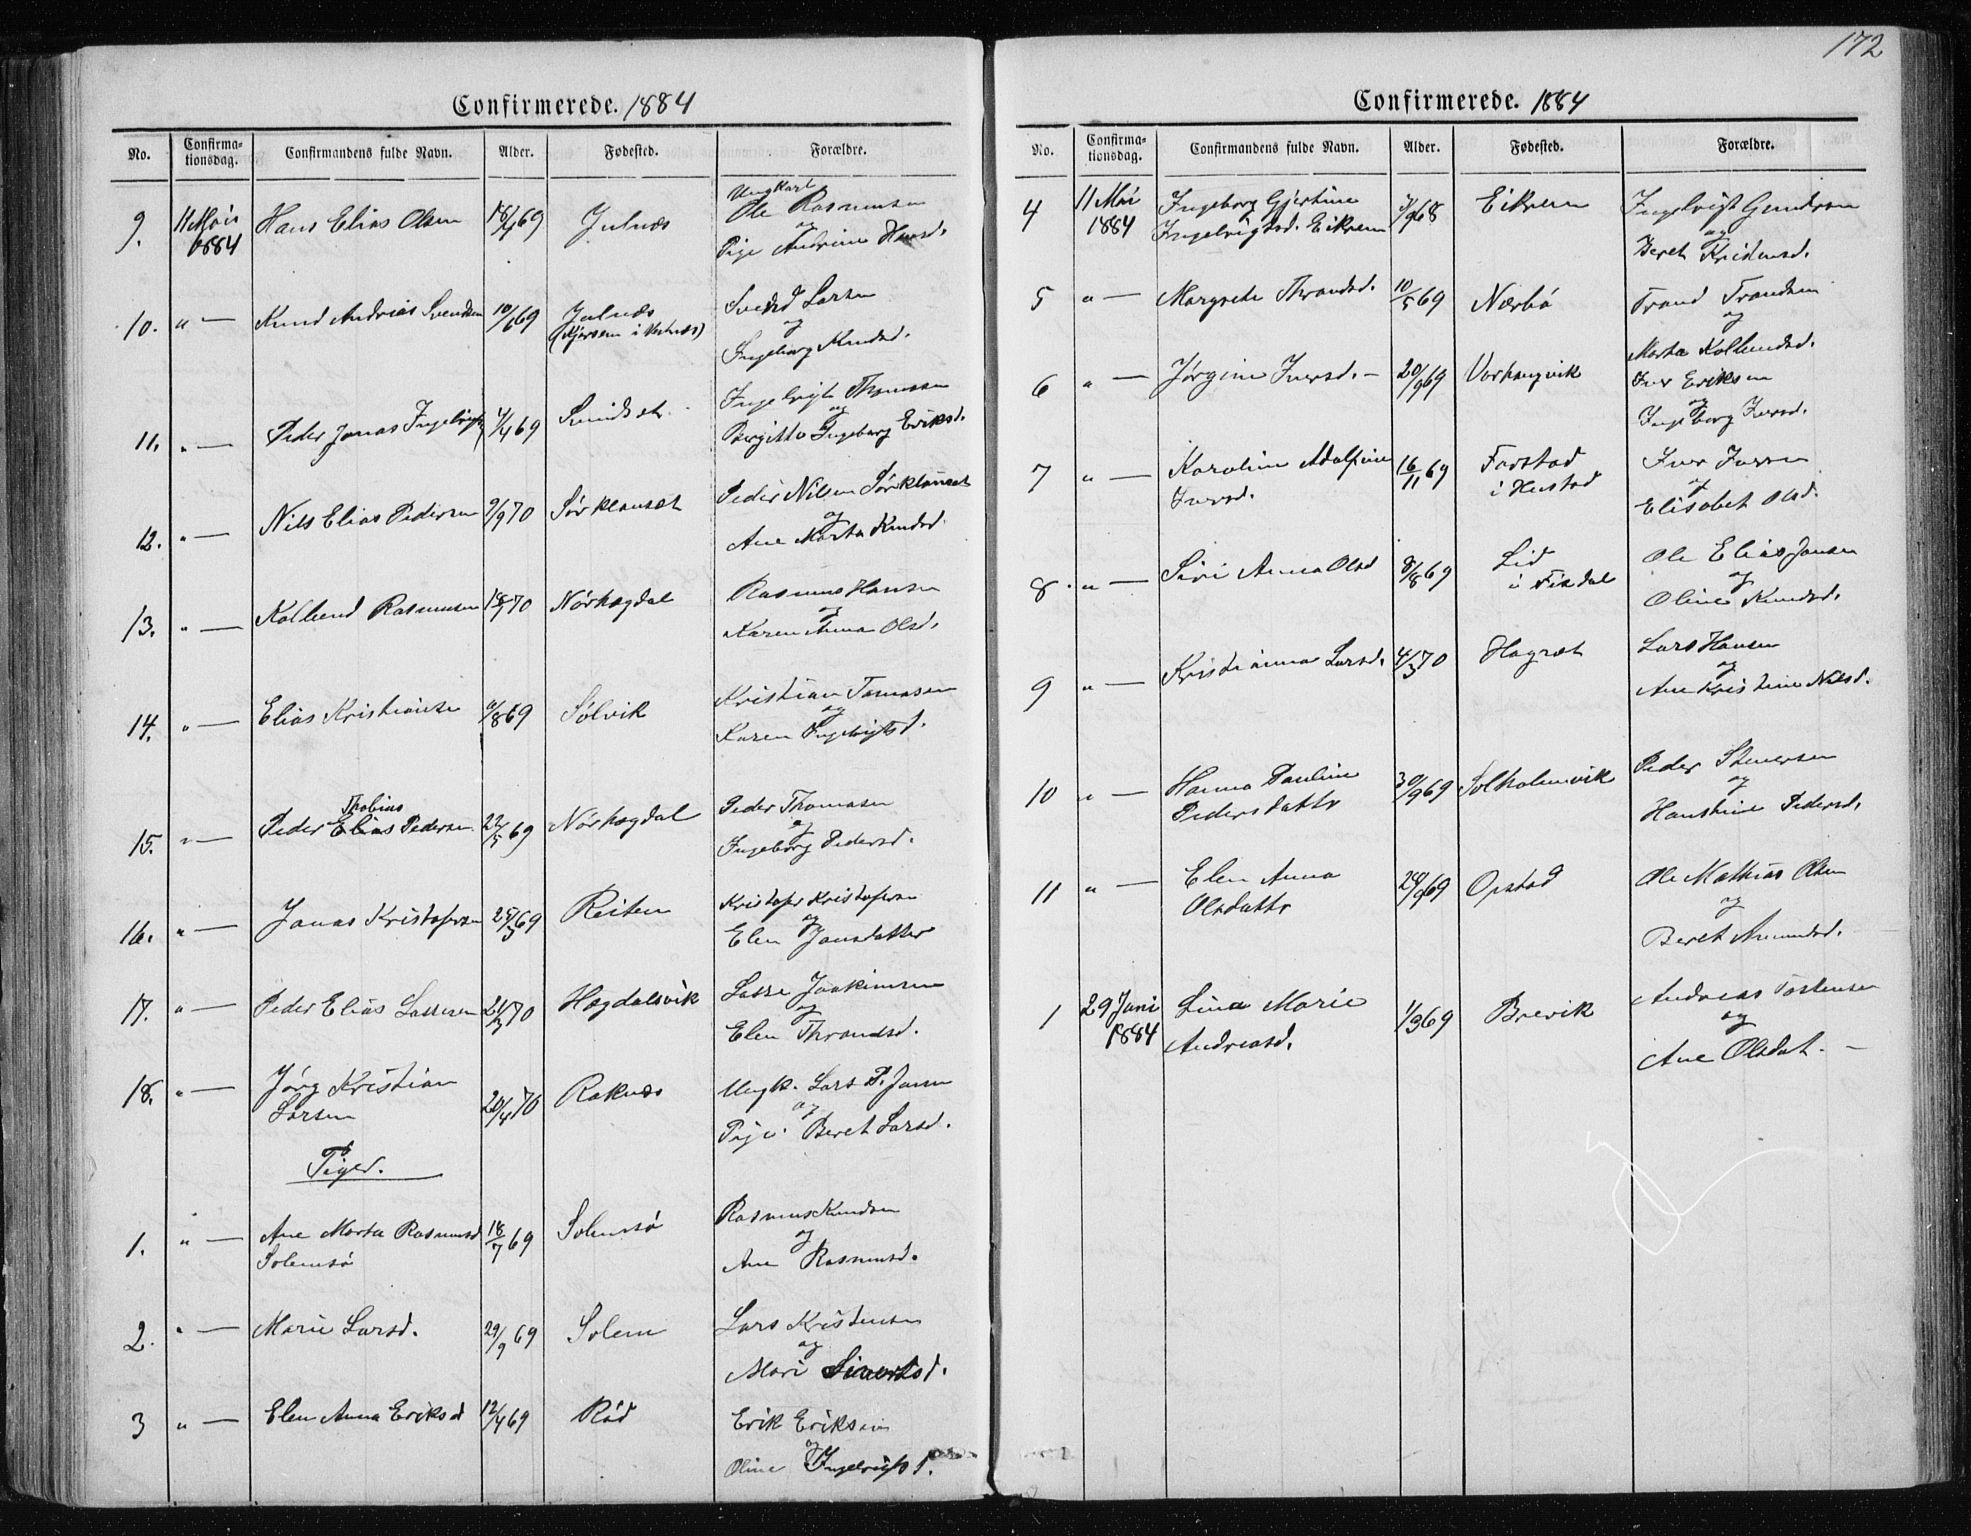 Confirmerede. 1884
No. Confirmationsdag. Confirmandens fulde Navn. Alder. Fødested. Forældre.
9. 11 Mai 1884 Hans Elias Olsen 18/4 69 Julnæs Ungkarl Ole Rasmussen
og
Pige Andrine Hansd.
10. " — Knud Andrias Svendsen 10/6 69 Julnæs Svend Larsen
og
Ingeborg Knudsd.
11. " — Peder Jonas Ingebrigts 4/4 69 Ingebrigt Thomsen
og
Birgitte Ingeborg Eriksd.
12. " — Nils Elias Pedersen 9/9 70 Sørklauset Peder Nilsen Sørklauset
og
Ane Marta Knudsd.
13. " — Kolbend Rasmussen 18/7 70 Nørhægdal Rasmus Hansen
og
Karen Anna Olsd.
14. " — Elias Kristiansen /8 69 Sølvik Kristian Tomasen
og
Karen Ingebrigtsd.
15. " — Peder Thobias Elias Pedersen 22/5 69 Nørhægdal Peder Thomasen
og
Ingeborg Pedersd.
16. " — Jonas Kristofersen 25/3 69 Reiten Kristofer Kristofersen
og
Elen Jonsdatter
17. " — Peder Elias Lassesen 21/3 70 Hægdalsvik Lasse Joakimsen
og
Elen Throndsd.
18. " — Jørg Kristian Larsen 20/4 70 Raknes Ungk. Lars P. Jansen
og
Pige. Beret Larsd.
Piger.
1. " — Ane Marta Rasmusd Solemsø 18/7 69 Solemsø Rasmus Knudsen
og
Ane Rasmusd.
2. " — Marie Larsd. 29/9 69 Solem Lars Kristensen
og
Mari Sivertsd.
3 " — Elen Anna Eriksd 12/4 69 Rød Erik Eriksen
og
Oline Ingebrigtsd.
172
Confirmerede. 1884
No. Confirmationsdag. Confirmandens fulde Navn. Alder. Fødested. Forældre.
4 11 Mai 1884 Ingeborg Gjertine Ingebrigtsd. Eikrem /9 68 Eikrem Ingebrigt Gundersen
og
Beret Kristensd.
5 " — Margrete Throndsd. 10/5 69 Nærbø Trond Trondsen
og
Marta Kolbendsd.
6 " — Jørgine Iversd. — 20/9 69 Vorhaugvik Iver Eriksen
og
Ingeborg Iversd.
7 " — Karoline Adolfine Iversd. 16/11 69 Farstad i Hustad Iver Iversen
og
Elisabet Olsd.
8 " — Siri Anna Olsd 8/8 69 Lid i Fixdal Ole Elias Jonsen
og
Oline Knudsd.
9 " — Kristianna Larsd. 4/3 70 Hagset Lars Hansen
og
Ane Kristine Nilsd.
10 " — Hanna Pauline Pedersdatter 30/9 69 Solholmvik Peder Stenersen
og
Hanstine Pedersd.
11 " — Elen Anna Olsdatter 24/9 69 Opstad Ole Mathias Olsen
og
Beret Amundsd.
1 29 Juni 1884 Lina Marie Andreasd. 1/3 69 Brevik Andreas Tostensen
og
Ane Olsdat. —